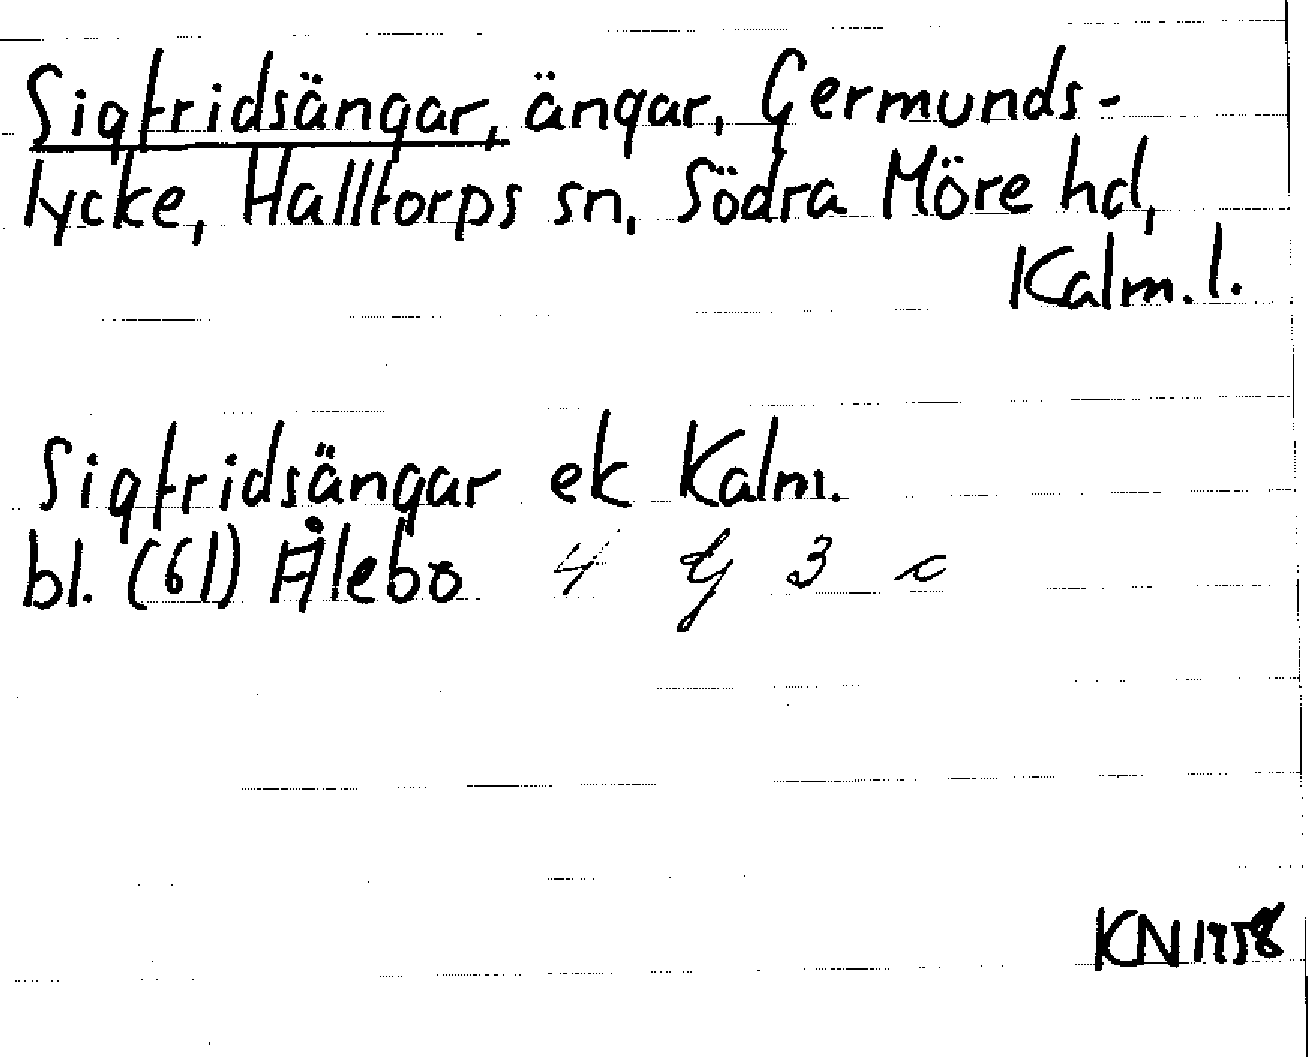 Sigfridsängar, ängar, Germunds-
lycke, Halltorps sn, Södra Möre hd,
Kalm. l.
Sigfridsängar ek Kalm.
bl. (61) Ålebo 4 G 3 c
KN 1958